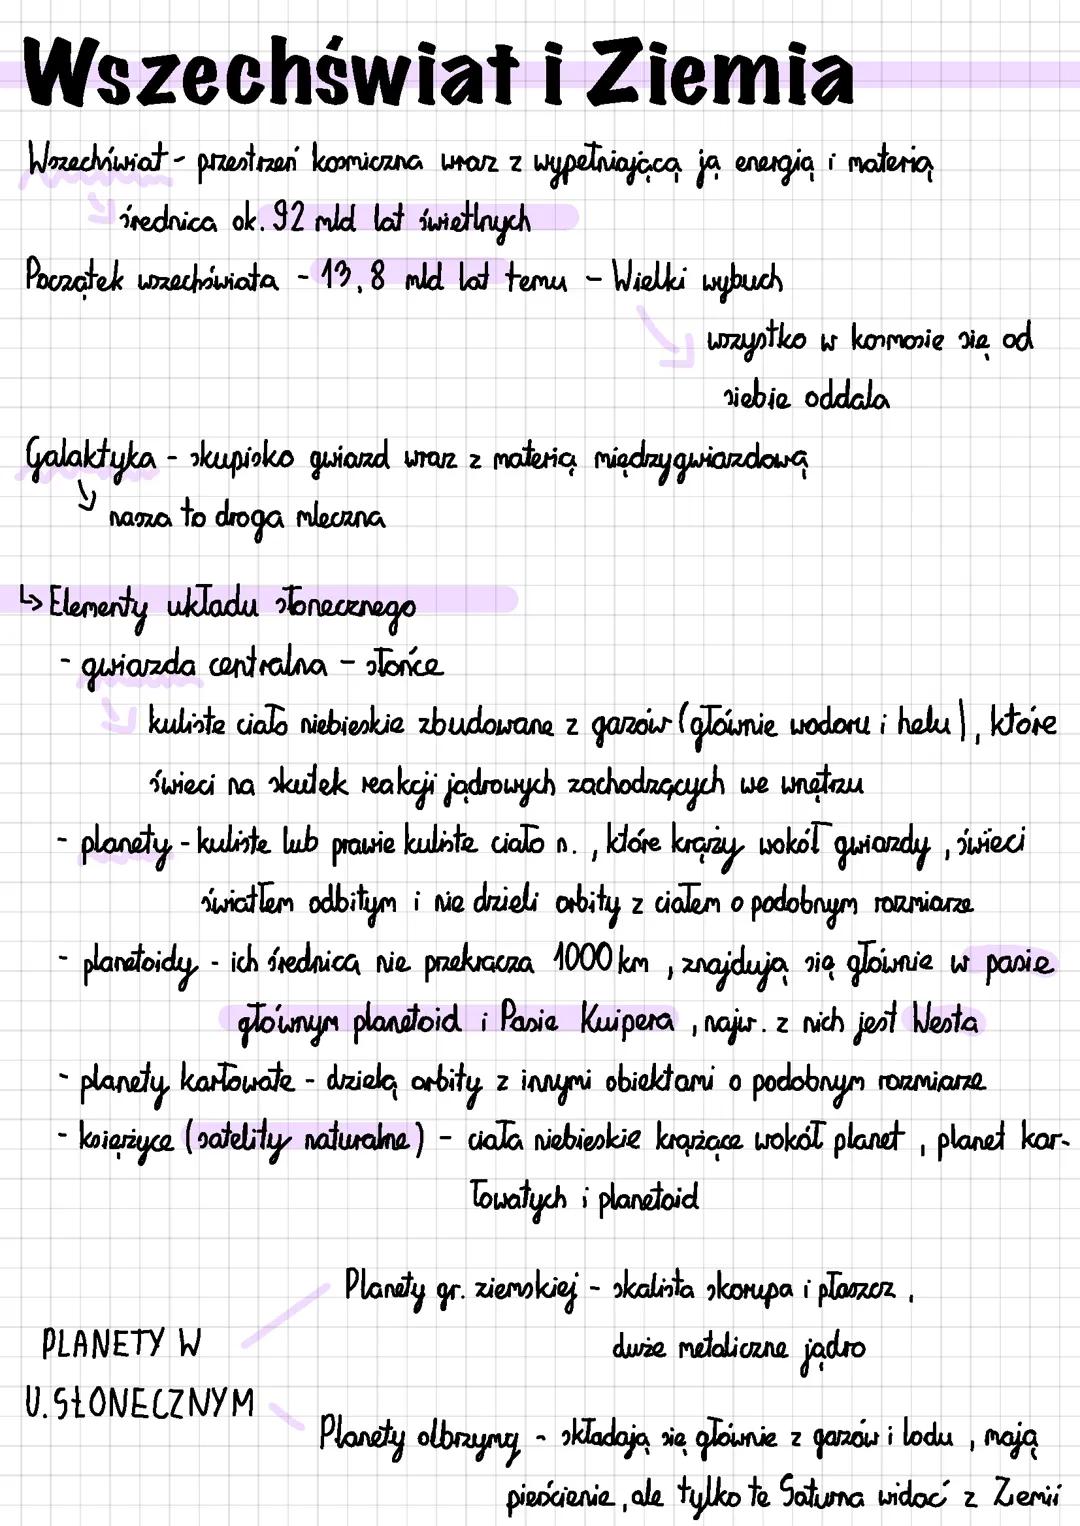 Wszechświat i Ziemia
Wszechświat - przestrzeń kosmiczna wraz z wypełniającą ją energią i materią
średnica ok. 92 mld lat świetlnych
Początek wszechświata - 13,8 mld lat temu - Wielki wybuch
wszystko w kosmosie się od
siebie oddala
Galaktyka - skupisko gwiazd wraz z materią międzygwiazdową
nasza to droga mleczna
↳ Elementy układu słonecznego
- gwiazda centralna - słońce
kuliste ciało niebieskie zbudowane z gazów (głównie wodoru i helu), które
świeci na skutek reakcji jądrowych zachodzących we wnętrzu
- planety - kuliste lub prawie kuliste ciało n., które krąży wokół gwiazdy, świeci
światłem odbitym i nie dzieli orbity z ciałem o podobnym rozmiarze
- planetoidy - ich średnica nie przekracza 1000 km, znajdują się głównie w pasie
głównym planetoid i Pasie Kuipera, najw. z nich jest Westa
- planety karłowate - dzielą orbity z innymi obiektami o podobnym rozmiarze
- księżyce (satelity naturalne) - ciała niebieskie krążące wokół planet, planet kar-
łowatych i planetoid
Planety gr. ziemskiej - skalista skorupa i płaszcz,
PLANETY W
duże metaliczne jądro
U. SŁONECZNYM
Planety olbrzymy - składają się głównie z gazów i lodu, mają
pierścienie, ale tylko te Saturna widać z Ziemii